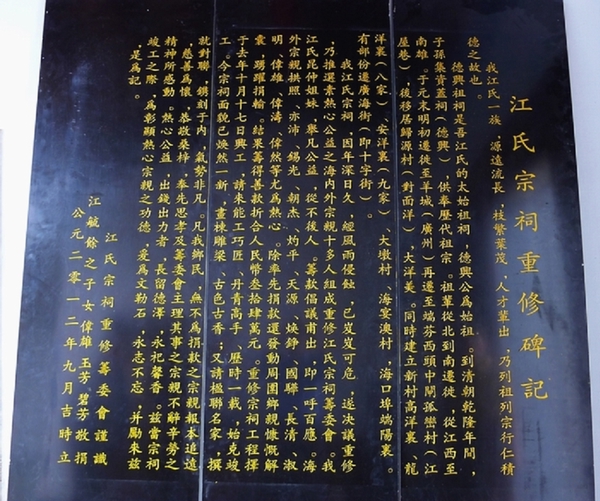 江氏宗祠重修碑記
我江氏一族，源遠流長，枝繁葉茂，人才輩出，乃列祖列宗行仁積
德之故也。
德興祖祠是吾江氏的太始祖祠，德興公為始祖。到清朝乾隆年間，
子孫集資蓋祠（德興），供奉歷代祖宗。祖輩從北到南遷徙，從江西至
南雄。于元末明初遷徙至羊城（廣州）再遷至端芬西頭中閘孤巒村（江
屋巷）後移居歸源村（對面洋），大洋美。同時建立新村高洋裏、龍
洋裏（八家）、安洋裏（九家）、大墩村、海宴澳村，海口埠端陽裏。
有部份遷廣海街（即十字街）。
我江氏宗祠，因年深日久，經風雨侵蝕，已岌岌可危，遂決議重修
，乃推選素熱心公益之海內外宗親十多人組成重修江氏宗祠籌委會。我
江氏昆仲姐妹，舉凡公益，從不後人。籌款倡議甫出，即一呼百應。海
外宗親拱照、亦沛、錫光、朝杰、灼平、天源、煥錚、國驊、長清、淑
明、偉雄、偉濤、偉然等尤為熱心。除率先捐款還發動周圍鄉親慷慨解
囊，踴躍捐輸。結果籌得善款折合人民幣叁拾肆萬元。重修宗祠工程擇
于去年十月十七日興工，請來能工巧匠、丹青高手，歷時一載，始克竣
工。今宗祠面貌已煥然一新，畫棟雕梁，古色古香；又請楹聯名家，撰
就對聯，鐫刻于內，氣勢非凡。凡我鄉民，無不為捐款之宗親報本追遠
，慈善為懷，恭敬桑梓，奉先思孝及籌委會主理其事之宗親不辭辛勞之
精神所感動。熱心公益，出錢出力者，長留德澤，永祀馨香。茲當宗祠
竣工之際，為彰顯熱心宗親之功德，爰為文勒石，永志不忘，并勵來茲
。是為記。
江氏宗祠重修籌委會謹識
江毓餘之子女偉雄玉芳碧芬敬捐
公元二零一二年九月吉時立